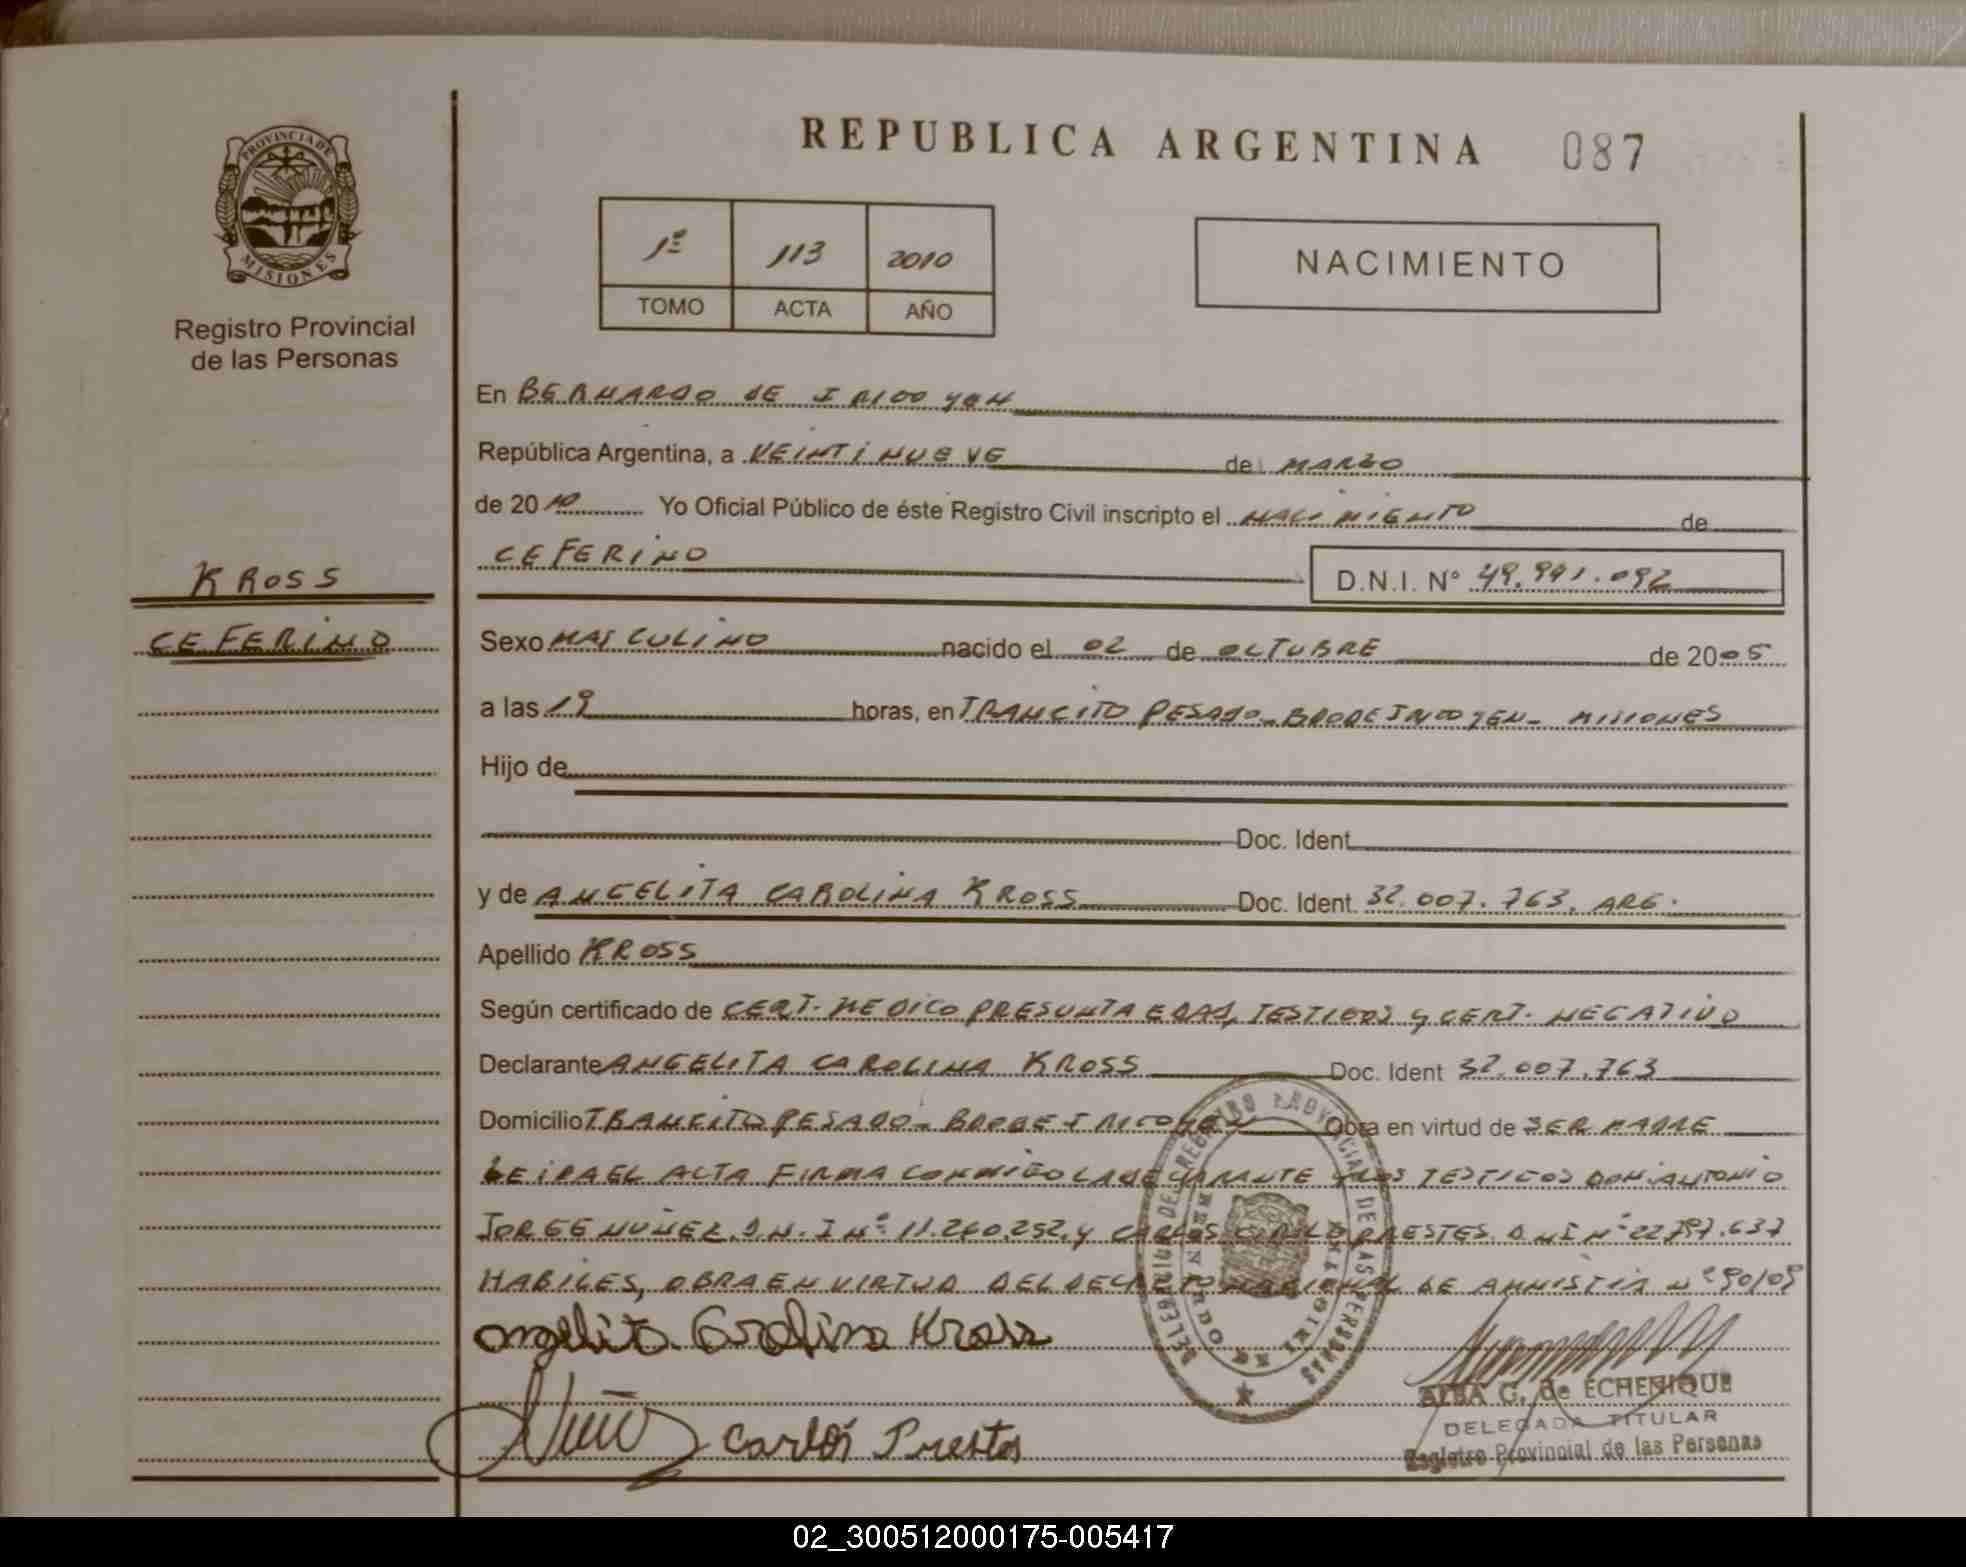 REPUBLICA ARGENTINA 087
PROVINCIA DE
MISIONES
Registro Provincial
de las Personas
1º 113 2010
TOMO ACTA AÑO
NACIMIENTO
En BERNARDO DE IRIGOYEN
República Argentina, a VEINTINUEVE de MARZO
de 2010 Yo Oficial Público de éste Registro Civil inscripto el NACIMIENTO de
CEFERINO D.N.I. Nº 49.991.092
KROSS
CEFERINO
Sexo MASCULINO nacido el 02 de OCTUBRE de 2005
a las 19 horas, en TRANCITO PESADO - BDO DE IRIGOYEN - MISIONES
Hijo de
Doc. Ident.
y de ANGELITA CAROLINA KROSS Doc. Ident. 32.007.763. ARG.
Apellido KROSS
Según certificado de CERT. MEDICO PRESUNTA EDAD, TESTIGOS y CERT. NEGATIVO
Declarante ANGELITA CAROLINA KROSS Doc. Ident 32.007.763
Domicilio TRANCITO PESADO - BDO DE IRIGOYEN Obra en virtud de SER MADRE
LEIDA EL ACTA FIRMA CONMIGO LA DECLARANTE y LOS TESTIGOS DON: ANTONIO
JORGE NUÑEZ, D.N.I Nº 11.260.252. y CARLOS PRESTES. D.N.I Nº 22.797.637
HABILES, OBRA EN VIRTUD DEL DECRETO NACIONAL DE AMNISTIA Nº 90/09
Angelita Carolina Kross
Carlos Prestes
ALBA G. de ECHENIQUE
DELEGADA TITULAR
Registro Provincial de las Personas
DEL REGISTRO PROVINCIAL DE LAS PERSONAS
BERNARDO DE IRIGOYEN
02_300512000175-005417